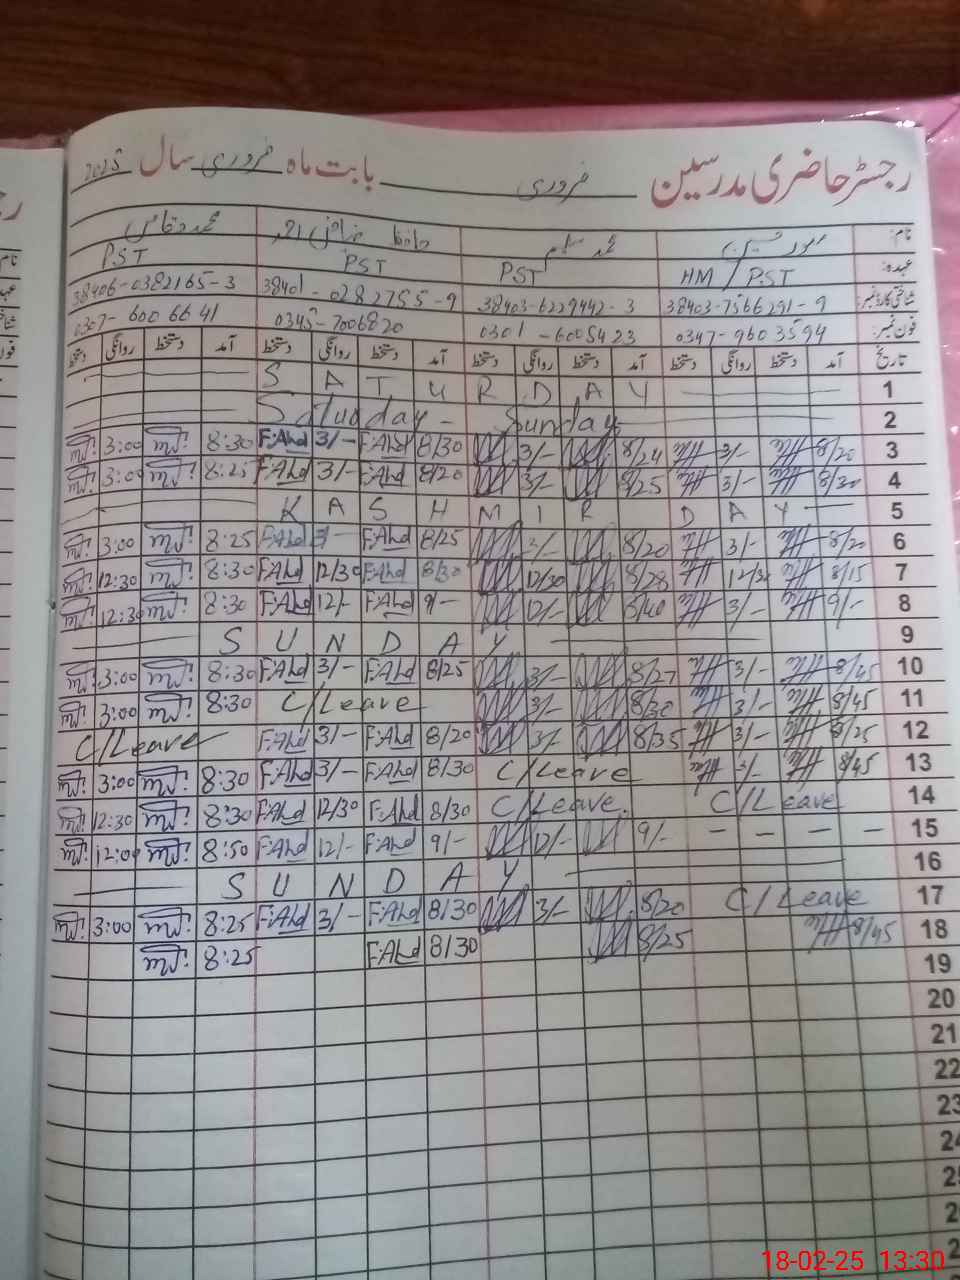 رجسٹر حاضری مدرسین فروری بابت ماہ فروری سال 2025
نام: محمد سلیم حافظ محمد وقاص
عہدہ: HM / PST PST PST PST
شناختی کارڈ نمبر: 38403-7566291-9 38403-6229442-3 38401-0282755-9 38406-0382165-3
فون نمبر: 0347-9603594 0301-6005423 0345-7006820 0307-6006641
تاریخ آمد دستخط روانگی دستخط آمد دستخط روانگی دستخط آمد دستخط روانگی دستخط آمد دستخط روانگی دستخط
1 SATURDAY
2 Sunday
3 8/20 3/- 8/24 3/- 8/30 F.Ahd 3/- F.Ahd 8:30 3:00
4 8/30 3/- 8/25 3/- 8/20 F.Ahd 3/- F.Ahd 8:25 3:00
5 KASHMIR DAY
6 8/20 3/- 8/20 3/- 8/25 F.Ahd 3/- F.Ahd 8:25 3:00
7 8/15 12/30 8/28 12/30 8/30 F.Ahd 12/30 F.Ahd 8:30 12:30
8 9/- 3/- 8/40 12/- 9/- F.Ahd 12/- F.Ahd 8:30 12:30
9 SUNDAY
10 8/45 3/- 8/27 3/- 8/25 F.Ahd 3/- F.Ahd 8:30 3:00
11 8/45 3/- 8/30 3/- C/Leave 8:30 3:00
12 8/25 3/- 8/35 3/- 8/20 F.Ahd 3/- F.Ahd C/Leave
13 8/45 3/- C/Leave 8/30 F.Ahd 3/- F.Ahd 8:30 3:00
14 C/Leave C/Leave 8/30 F.Ahd 12/30 F.Ahd 8:30 12:30
15 - - - - 9/- 12/- 9/- F.Ahd 12/- F.Ahd 8:50 12:00
16 SUNDAY
17 C/Leave 8/20 3/- 8/30 F.Ahd 3/- F.Ahd 8:25 3:00
18 8/45 8/25 8/30 F.Ahd 8:25
19
20
21
22
23
24
18-02-25 13:30